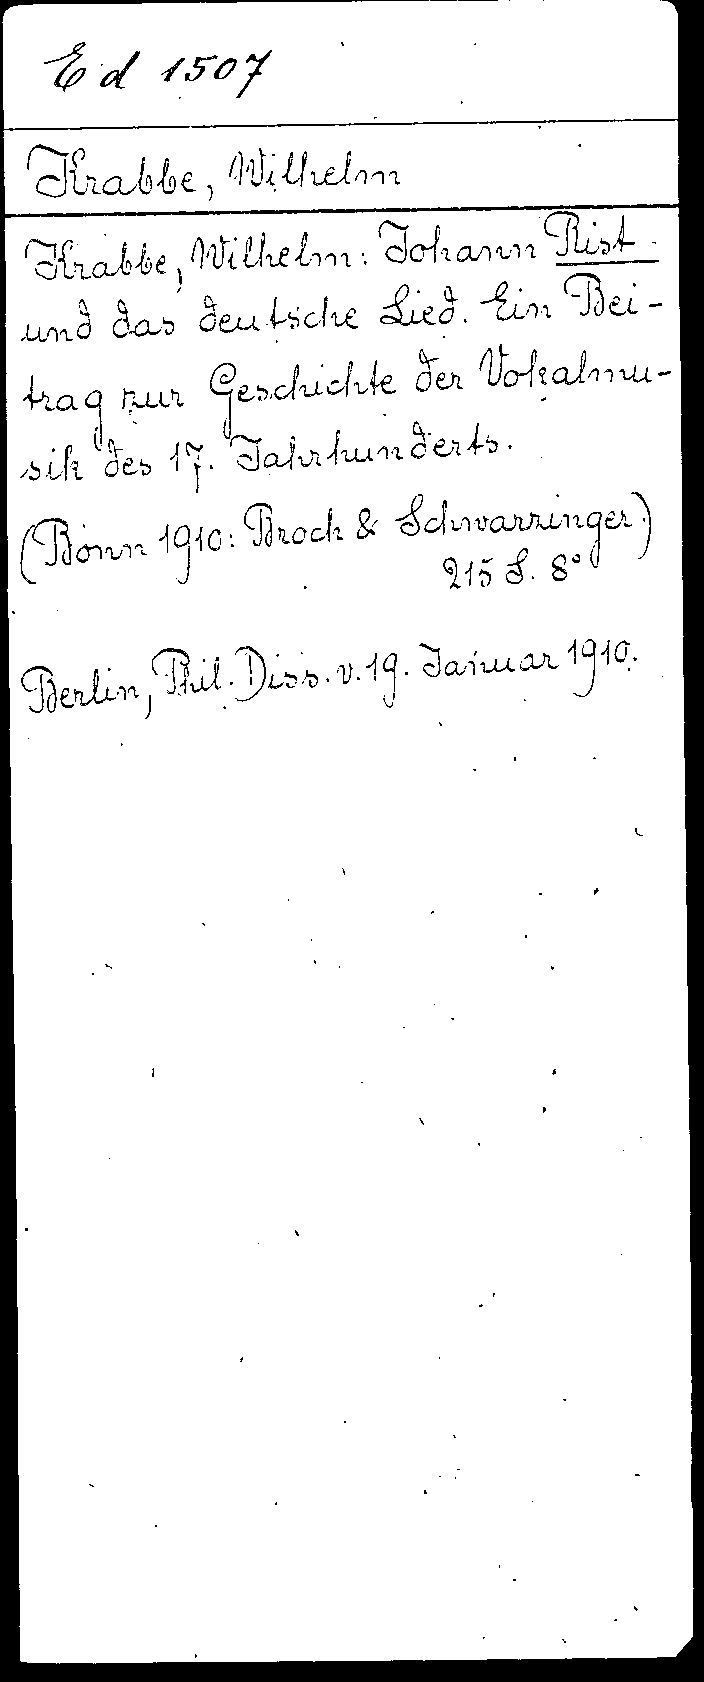 Ed 1507
Krabbe, Wilhelm
Krabbe, Wilhelm: Johann Rist
und das deutsche Lied. Ein Bei-
trag zur Geschichte der Vokalmu-
sik des 17. Jahrhunderts.
(Bonn 1910: Broch & Schwarzinger)
215 S. 8°
Berlin, Phil. Diss. v. 19. Januar 1910.